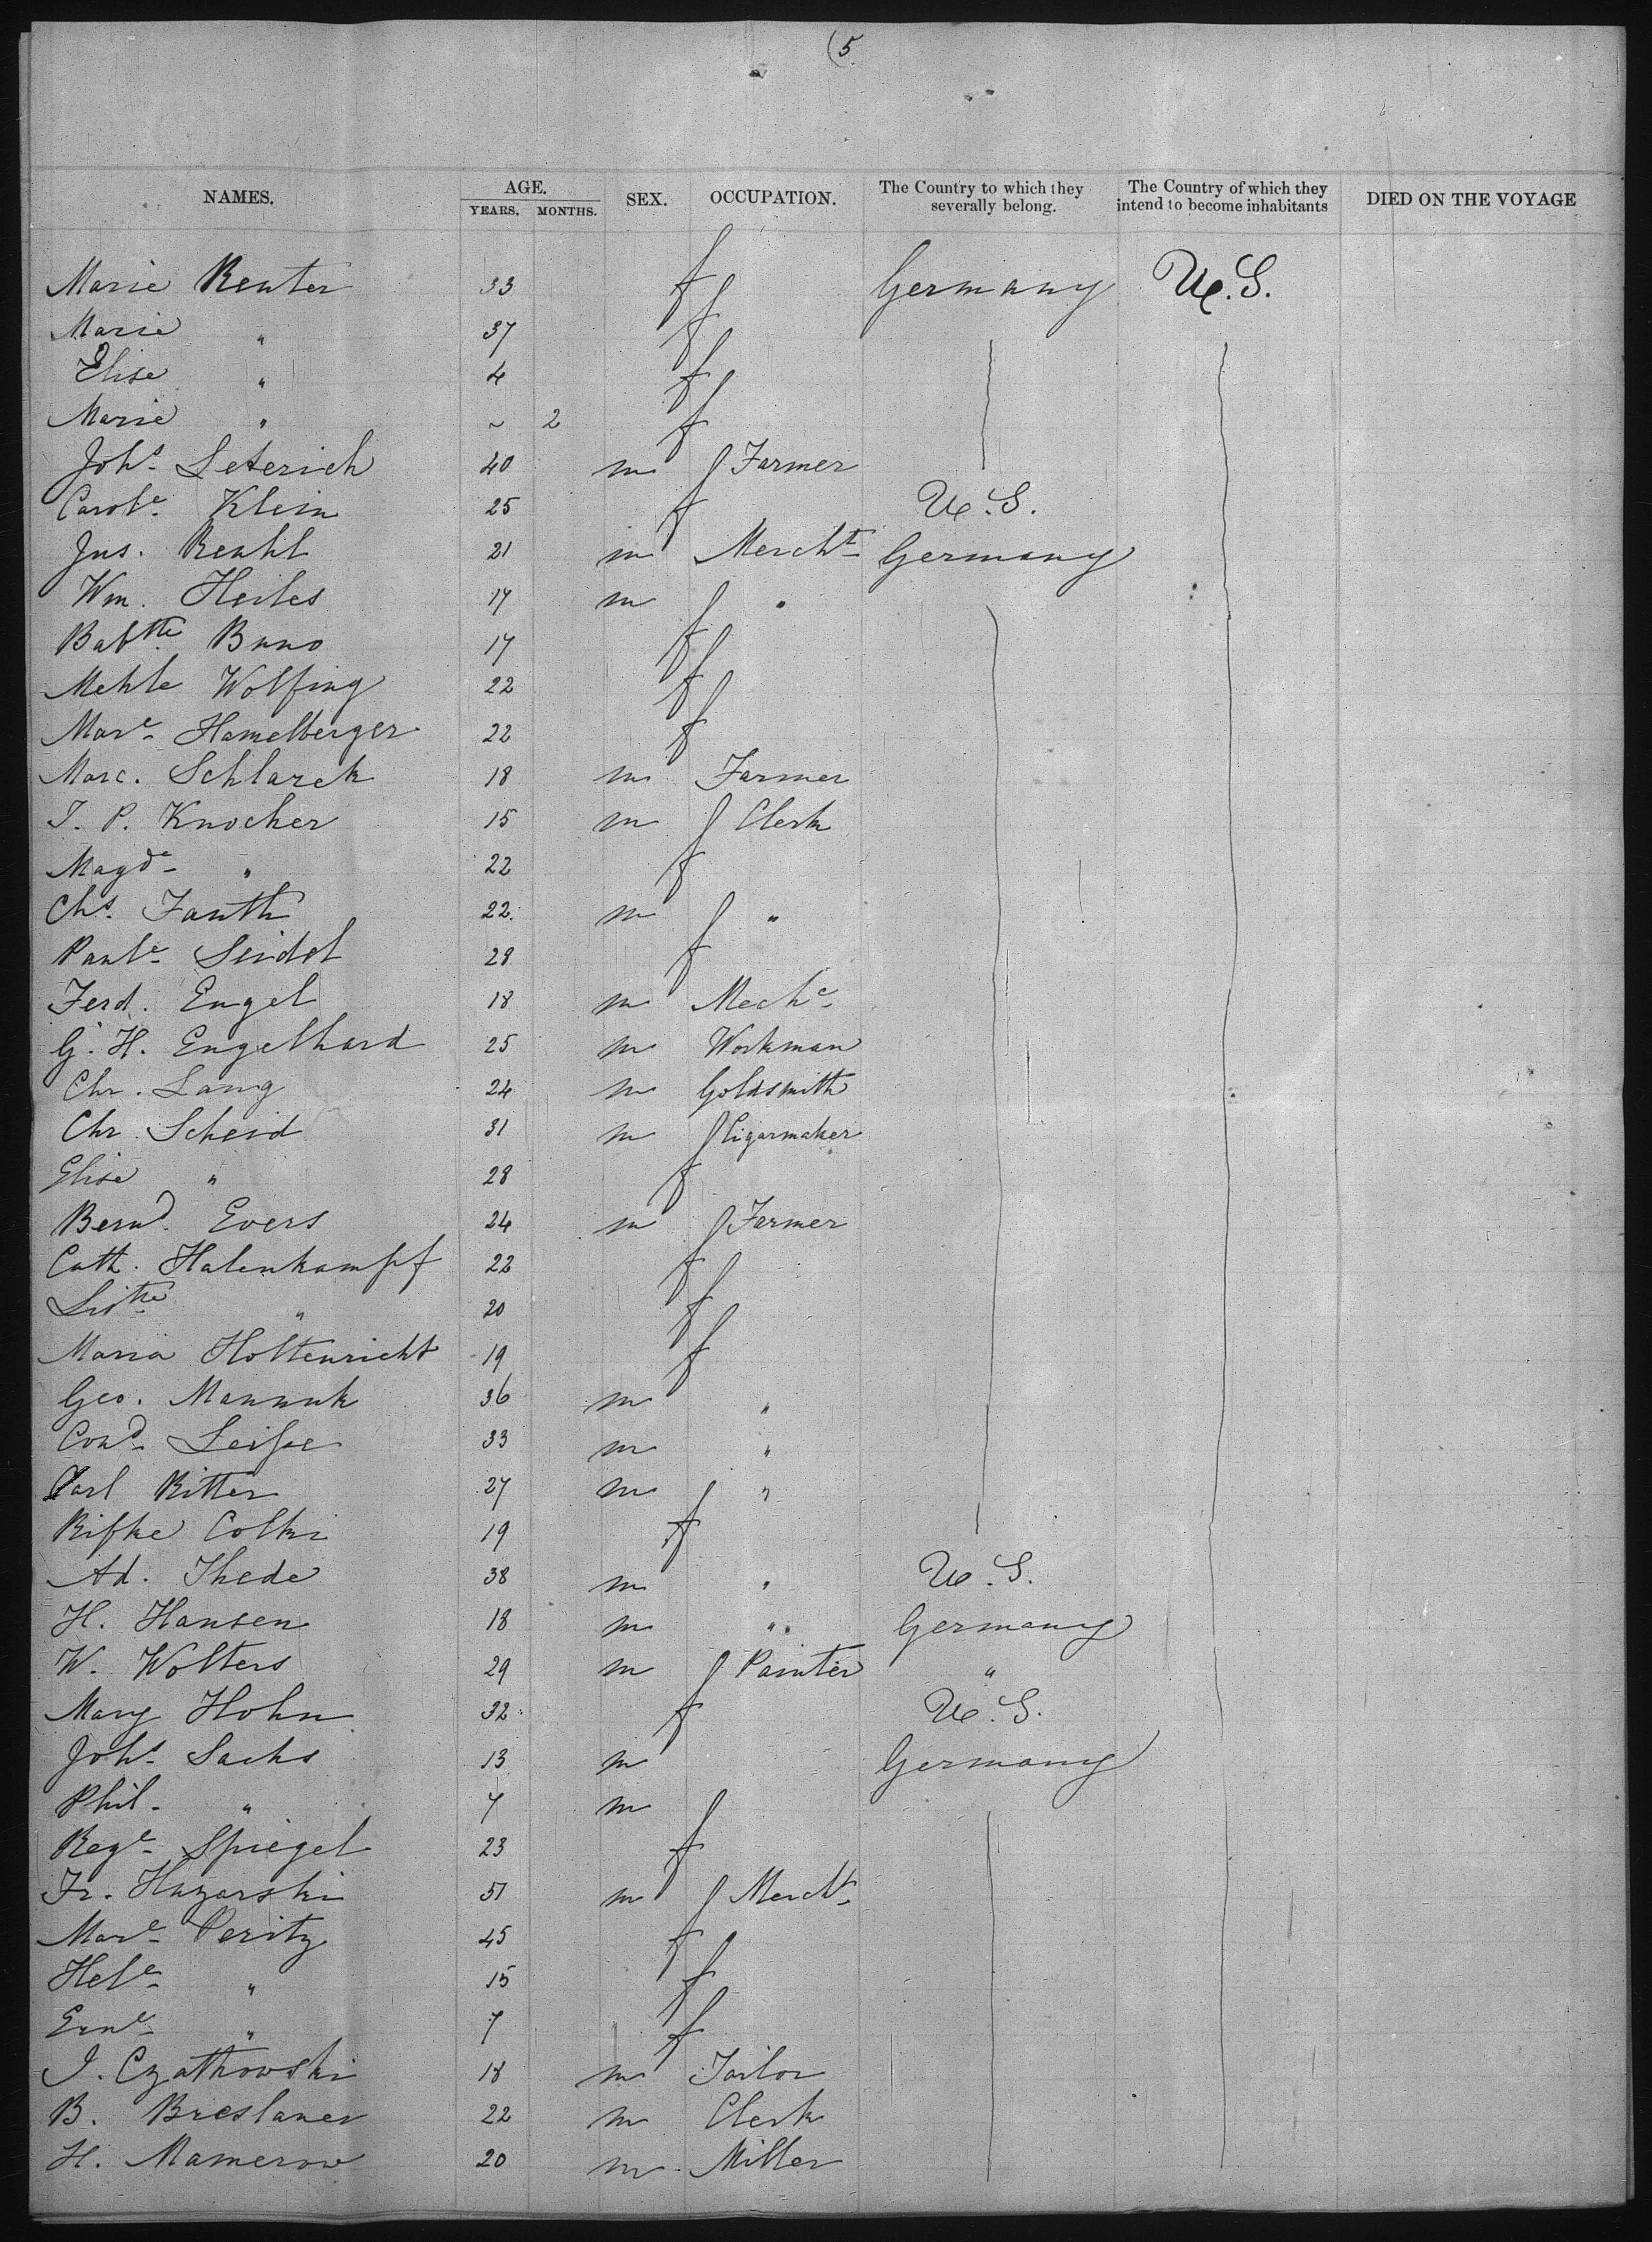 (5
NAMES. AGE. YEARS. MONTHS. SEX. OCCUPATION. The Country to which they severally belong. The Country of which they intend to become inhabitants DIED ON THE VOYAGE
Marie Reuter 33 f Germany U.S.
Marie " 37 f
Elise " 4 f
Marie " ~ 2 f
Johs. Leterich 40 m Farmer
Carole. Klein 25 f U.S.
Jus. Reahl 21 m Mercht. Germany
Wm. Heiles 17 m "
Babtte. Buno 17 f
Mehle Wolfing 22 f
Mare. Hamelberger 22 f
Marc. Schlarek 18 m Farmer
J. P. Knocher 15 m Clerk
Magde. " 22 f
Chs. Fauth 22 m "
Paule. Seidel 28 f
Ferd. Engel 18 m Meche.
G. H. Engelhard 25 m Workman
Chr. Lang 24 m Goldsmith
Chr. Scheid 31 m Cigarmaker
Elise " 28 f
Bernd. Evers 24 m Farmer
Cath. Halenkampf 22 f
Listte. " 20 f
Maria Holtenricht 19 f
Geo. Mannuk 36 m "
Cond. Leifse 33 m "
Carl Ritter 27 m "
Rifke Colki 19 f
Ad. Thede 38 m " U.S.
H. Hansen 18 m " Germany
W. Wolters 29 m Painter "
Mary Hohn 32 f U.S.
Johs. Sachs 13 m Germany
Phil. " 7 m
Rege. Spiegel 23 f
Fr. Huzarski 51 m Mercht.
Mare. Peritz 45 f
Hele. " 15 f
Erne. " 7 f
J. Czatkowski 18 m Tailor
B. Breslauer 22 m Clerk
H. Mamerow 20 m Miller